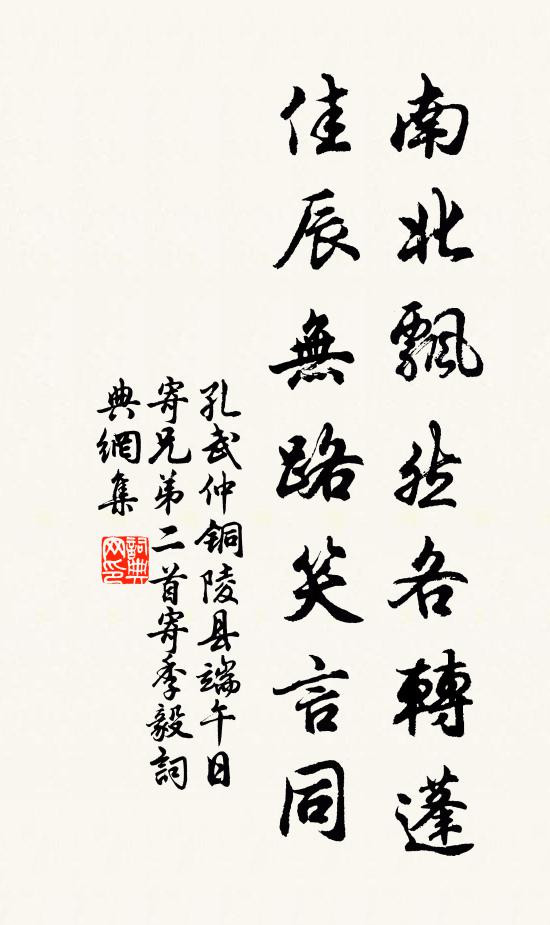 南北飄然各轉蓬
佳辰無路笑言同
孔武仲銅陵县端午日
寄兄弟二首寄季毅詞
典網集
詞典网印